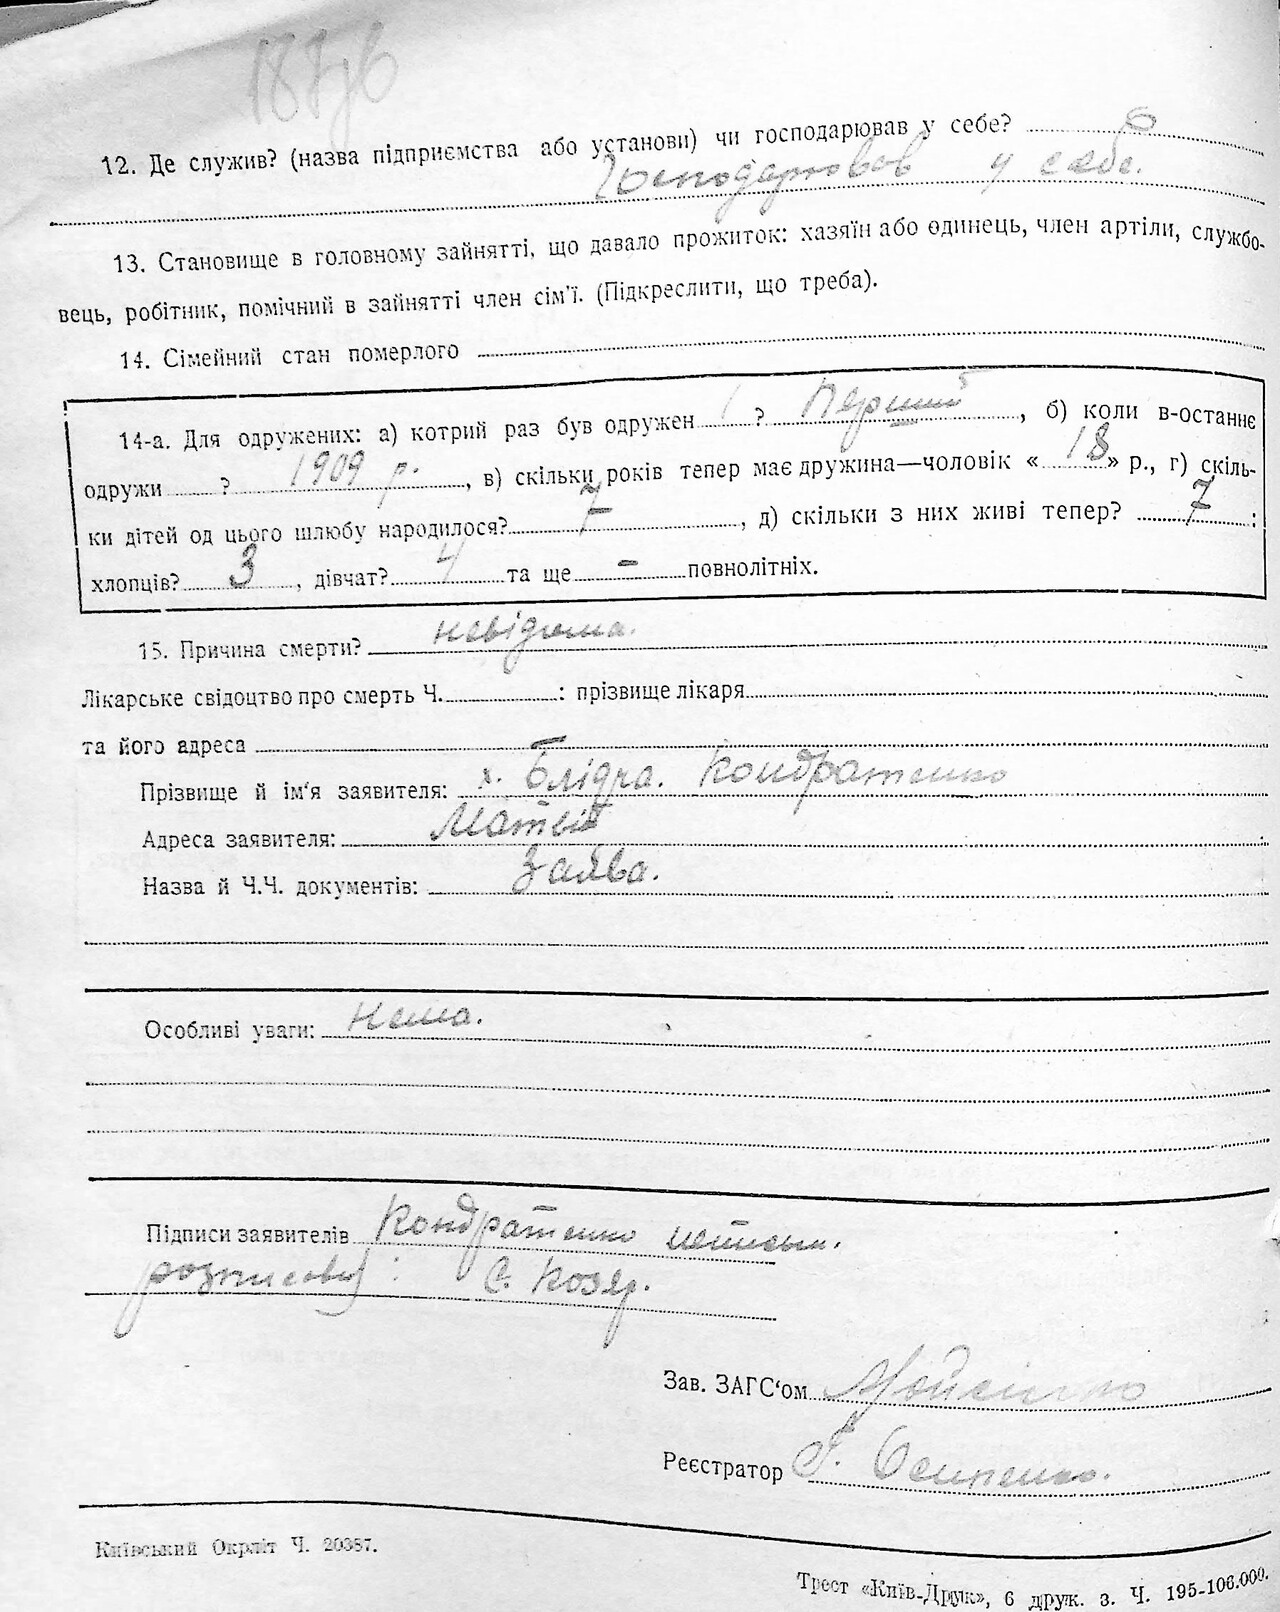 12. Де служив? (назва підприємства або установи) чи господарював у себе? 
Господарював у себе.
13. Становище в головному зайнятті, що давало прожиток: хазяїн або одинець, член артіли, службо-
вець, робітник, помічний в зайнятті член сім'ї. (Підкреслити, що треба).
14. Сімейний стан померлого
14-а. Для одружених: а) котрий раз був одружен 1 ? Перший, б) коли в-останнє
одружи ? 1909 р., в) скільки років тепер має дружина—чоловік «18» р., г) скіль-
ки дітей од цього шлюбу народилося? 7, д) скільки з них живі тепер? 7:
хлопців? 3, дівчат? 4 та ще – повнолітніх.
15. Причина смерти? невідома.
Лікарське свідоцтво про смерть Ч. : прізвище лікаря
та його адреса –
Прізвище й ім'я заявителя: х. Блідча. Кондратенко
Адреса заявителя: Матвій
Назва й Ч.Ч. документів: Заява.
Особливі уваги: Нема.
Підписи заявителів Кондратенко неписьм.
розписавсь: С. Козяр.
Зав. ЗАГС'ом
Реєстратор Г. Осипенко.
Київський Окрліт Ч. 20387.
Трест «Київ-Друк», 6 друк. з. Ч. 195-106.000.